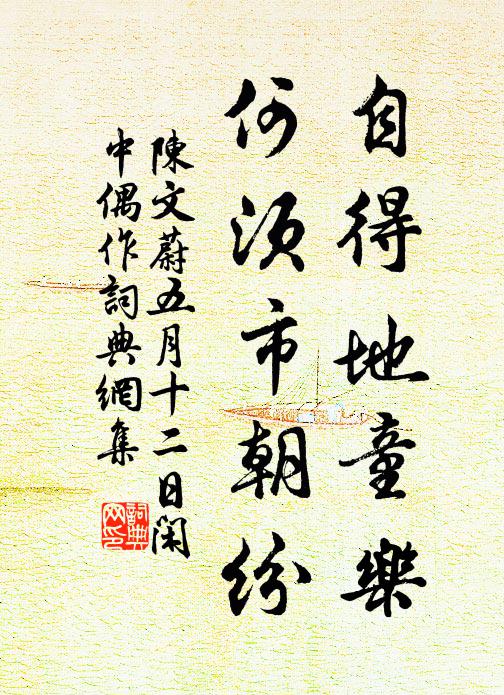 自得地童樂
何須市朝紛
陳文蔚五月十二日閑
中偶作詞典網集
詞典
网印